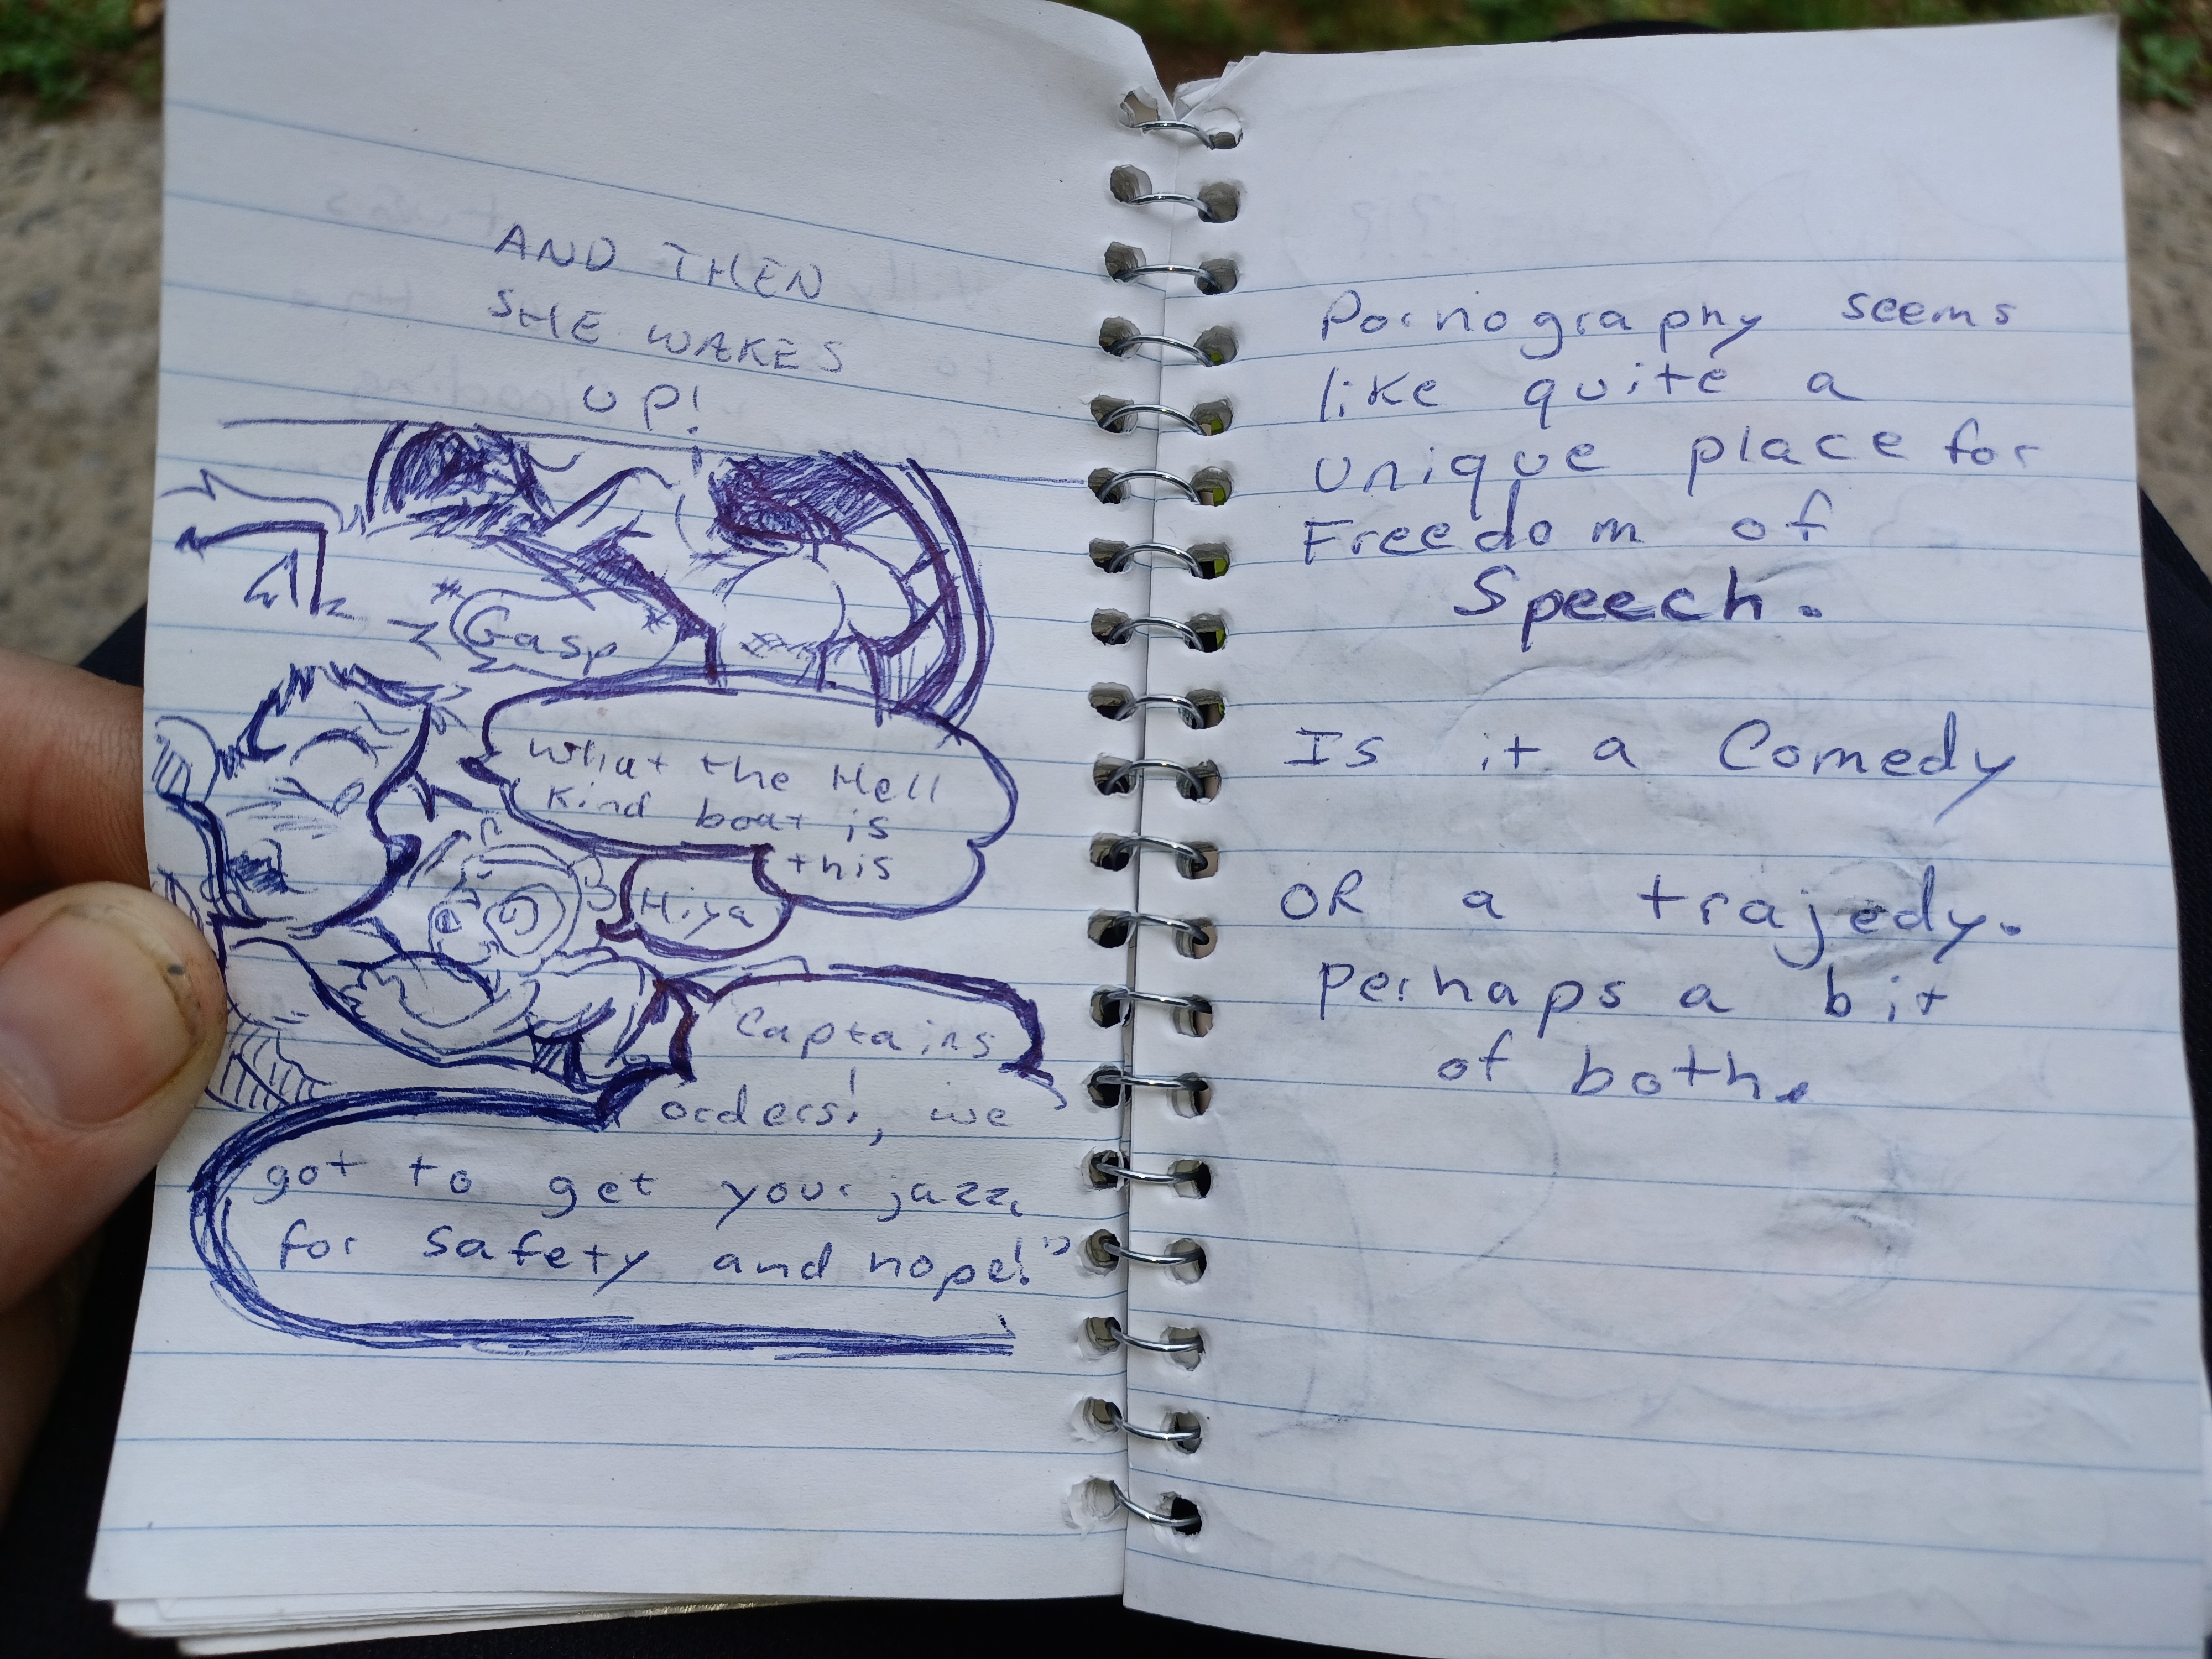 AND THEN
SHE WAKES
UP!
*Gasp*
What the Hell
Kind boat is
this
Hiya
Captains
orders!, we
got to get your jazz,
for safety and nope!"
Pornography seems
like quite a
unique place for
Freedom of
Speech.
Is it a Comedy
OR a trajedy.
Perhaps a bit
of both.